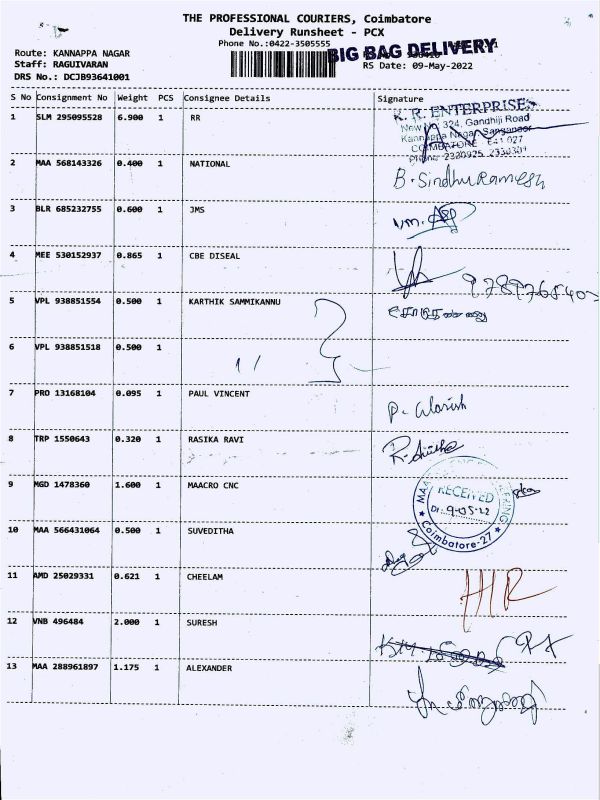 THE PROFESSIONAL COURIERS, Coimbatore
Delivery Runsheet - PCX
Phone No.:0422-3505555
BIG BAG DELIVERY
Route: KANNAPPA NAGAR
Staff: RAGUIVARAN
RS Date: 09-May-2022
DRS No.: DCJB93641001
S No Consignment No Weight PCS Consignee Details Signature
1 SLM 295095528 6.900 1 RR
K. R. ENTERPRISES
New No. 324, Gandhiji Road
Kannappa Nagar, Sanganoor
COIMBATORE - 641 027
Phone: 2330925
2 MAA 568143326 0.400 1 NATIONAL B. Sindhu Ramesh
3 BLR 685232755 0.600 1 JMS
4 MEE 530152937 0.865 1 CBE DISEAL
5 VPL 938851554 0.500 1 KARTHIK SAMMIKANNU
6 VPL 938851518 0.500 1
7 PRO 13168104 0.095 1 PAUL VINCENT
8 TRP 1550643 0.320 1 RASIKA RAVI
9 MGD 1478360 1.600 1 MAACRO CNC
RECEIVED
Dt: 9-05-22
Coimbatore-27
10 MAA 566431064 0.500 1 SUVEDITHA
11 AMD 25029331 0.621 1 CHEELAM
12 VNB 496484 2.000 1 SURESH
13 MAA 288961897 1.175 1 ALEXANDER